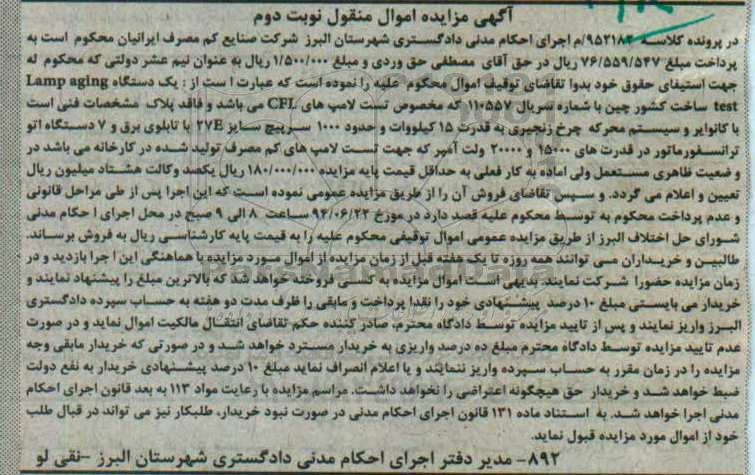 آگهی مزایده اموال منقول نوبت دوم
در پرونده کلاسه ۹۵۲۱۸۳/م اجرای احکام مدنی دادگستری شهرستان البرز شرکت صنایع کم مصرف ایرانیان محکوم است به
پرداخت مبلغ ۷۶/۵۵۹/۵۴۷ ریال در حق آقای مصطفی حق وردی و مبلغ ۱/۵۰۰/۰۰۰ ریال به عنوان نیم عشر دولتی که محکوم له
جهت استیفای حقوق خود بدوا تقاضای توقیف اموال محکوم علیه را نموده است که عبارت ا ست از : یک دستگاه Lamp aging
test ساخت کشور چین با شماره سریال ۱۱۰۵۵۷ که مخصوص تست لامپ های CFL می باشد و فاقد پلاک مشخصات فنی است
با کانوایر و سیستم محرکه چرخ زنجیری به قدرت ۱۵ کیلووات و حدود ۱۰۰۰ سرپیچ سایز E۲۷ با تابلوی برق و ۷ دستگاه اتو
ترانسفورماتور در قدرت های ۱۵۰۰۰ و ۲۰۰۰۰ ولت آمپر که جهت تست لامپ های کم مصرف تولید شده در کارخانه می باشد در
وضعیت ظاهری مستعمل ولی اماده به کار فعلی به حداقل قیمت پایه مزایده ۱۸۰/۰۰۰/۰۰۰ ریال یکصد وکالت هشتاد میلیون ریال
تعیین و اعلام می گردد. و سپس تقاضای فروش آن را از طریق مزایده عمومی نموده است که این اجرا پس از طی مراحل قانونی
و عدم پرداخت محکوم به توسط محکوم علیه قصد دارد در مورخ ۹۶/۰۶/۲۲ ساعت ۸ الی ۹ صبح در محل اجرای ا حکام مدنی
شورای حل اختلاف البرز از طریق مزایده عمومی اموال توقیفی محکوم علیه را به قیمت پایه کارشناسی ریال به فروش برساند.
طالبین و خریداران می توانند همه روزه تا یک هفته قبل از زمان مزایده از اموال مورد مزایده با هماهنگی این ا جرا بازدید و در
زمان مزایده حضورا شرکت نمایند. بدیهی است اموال مزایده به کسی فروخته خواهد شد که بالاترین مبلغ را پیشنهاد نمایند و
خریدار می بایستی مبلغ ۱۰ درصد پیشنهادی خود را نقدا پرداخت و مابقی را ظرف مدت دو هفته به حساب سپرده دادگستری
البرز واریز نمایند و پس از تایید مزایده توسط دادگاه محترم، صادر کننده حکم تقاضای انتقال مالکیت اموال نماید و در صورت
عدم تایید مزایده توسط دادگاه محترم مبلغ ده درصد واریزی به خریدار مسترد خواهد شد و در صورتی که خریدار مابقی وجه
مزایده را در زمان مقرر به حساب سپرده واریز ننمایند و یا اعلام انصراف نماید مبلغ ۱۰ درصد پیشنهادی خریدار به نفع دولت
ضبط خواهد شد و خریدار حق هیچگونه اعتراضی را نخواهد داشت. مراسم مزایده با رعایت مواد ۱۱۳ به بعد قانون اجرای احکام
مدنی اجرا خواهد شد. به استناد ماده ۱۳۱ قانون اجرای احکام مدنی در صورت نبود خریدار، طلبکار نیز می تواند در قبال طلب
خود از اموال مورد مزایده قبول نماید.
۸۹۲- مدیر دفتر اجرای احکام مدنی دادگستری شهرستان البرز –نقی لو